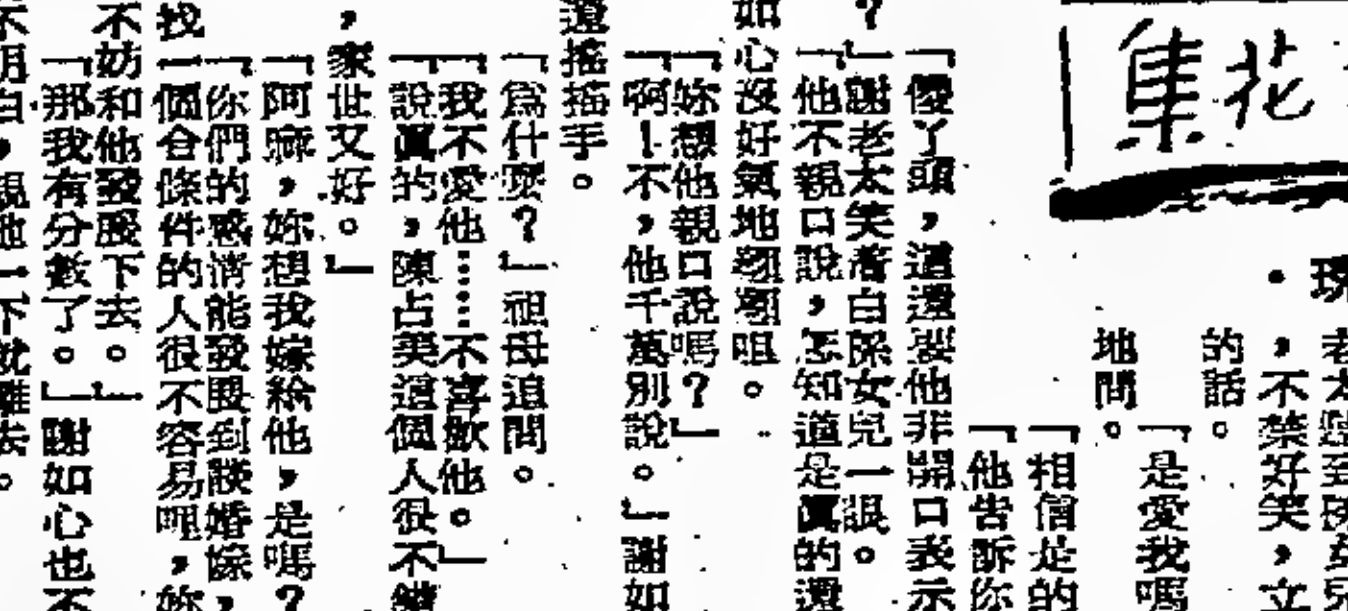 花集
，不禁好笑，立
的話。
「是愛我嗎
地問。
「相信是的
「他告訴你
「傻丫頭，這還要他非開口表示
？」謝老太笑着白孫女兒一眼。
「他不親口說，怎知道是眞的還
如心沒好氣地
咀。
「妳想他親口說嗎？」
「啊！不，他千萬別說。」謝如
還搖搖手。
「爲什麼？」祖母追問。
「我不愛他……不喜歡他。」
「說眞的，陳占美這個人很不錯
，家世又好。」
「阿嫲，妳想我嫁給他，是嗎？
「你們的感情能發展到談婚嫁，
找一個合條件的人很不容易哩，妳
不妨和他發展下去。」
「那我有分數了。」謝如心也不